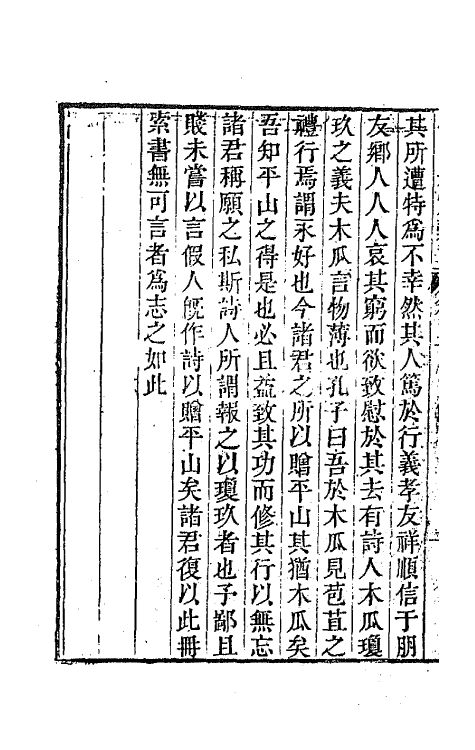 其所遭特爲不幸然其人篤於行義孝友祥順信于朋
友鄉人人人哀其窮而欲致慰於其去有詩人木瓜瓊
玖之義夫木瓜言物薄也孔子曰吾於木瓜見苞苴之
禮行焉謂永好也今諸君之所以贈平山其猶木瓜矣
吾知平山之得是也必且益致其功而修其行以無忘
諸君稱願之私斯詩人所謂報之以瓊玖者也予鄙且
賤未嘗以言假人旣作詩以贈平山矣諸君復以此冊
索書無可言者爲志之如此